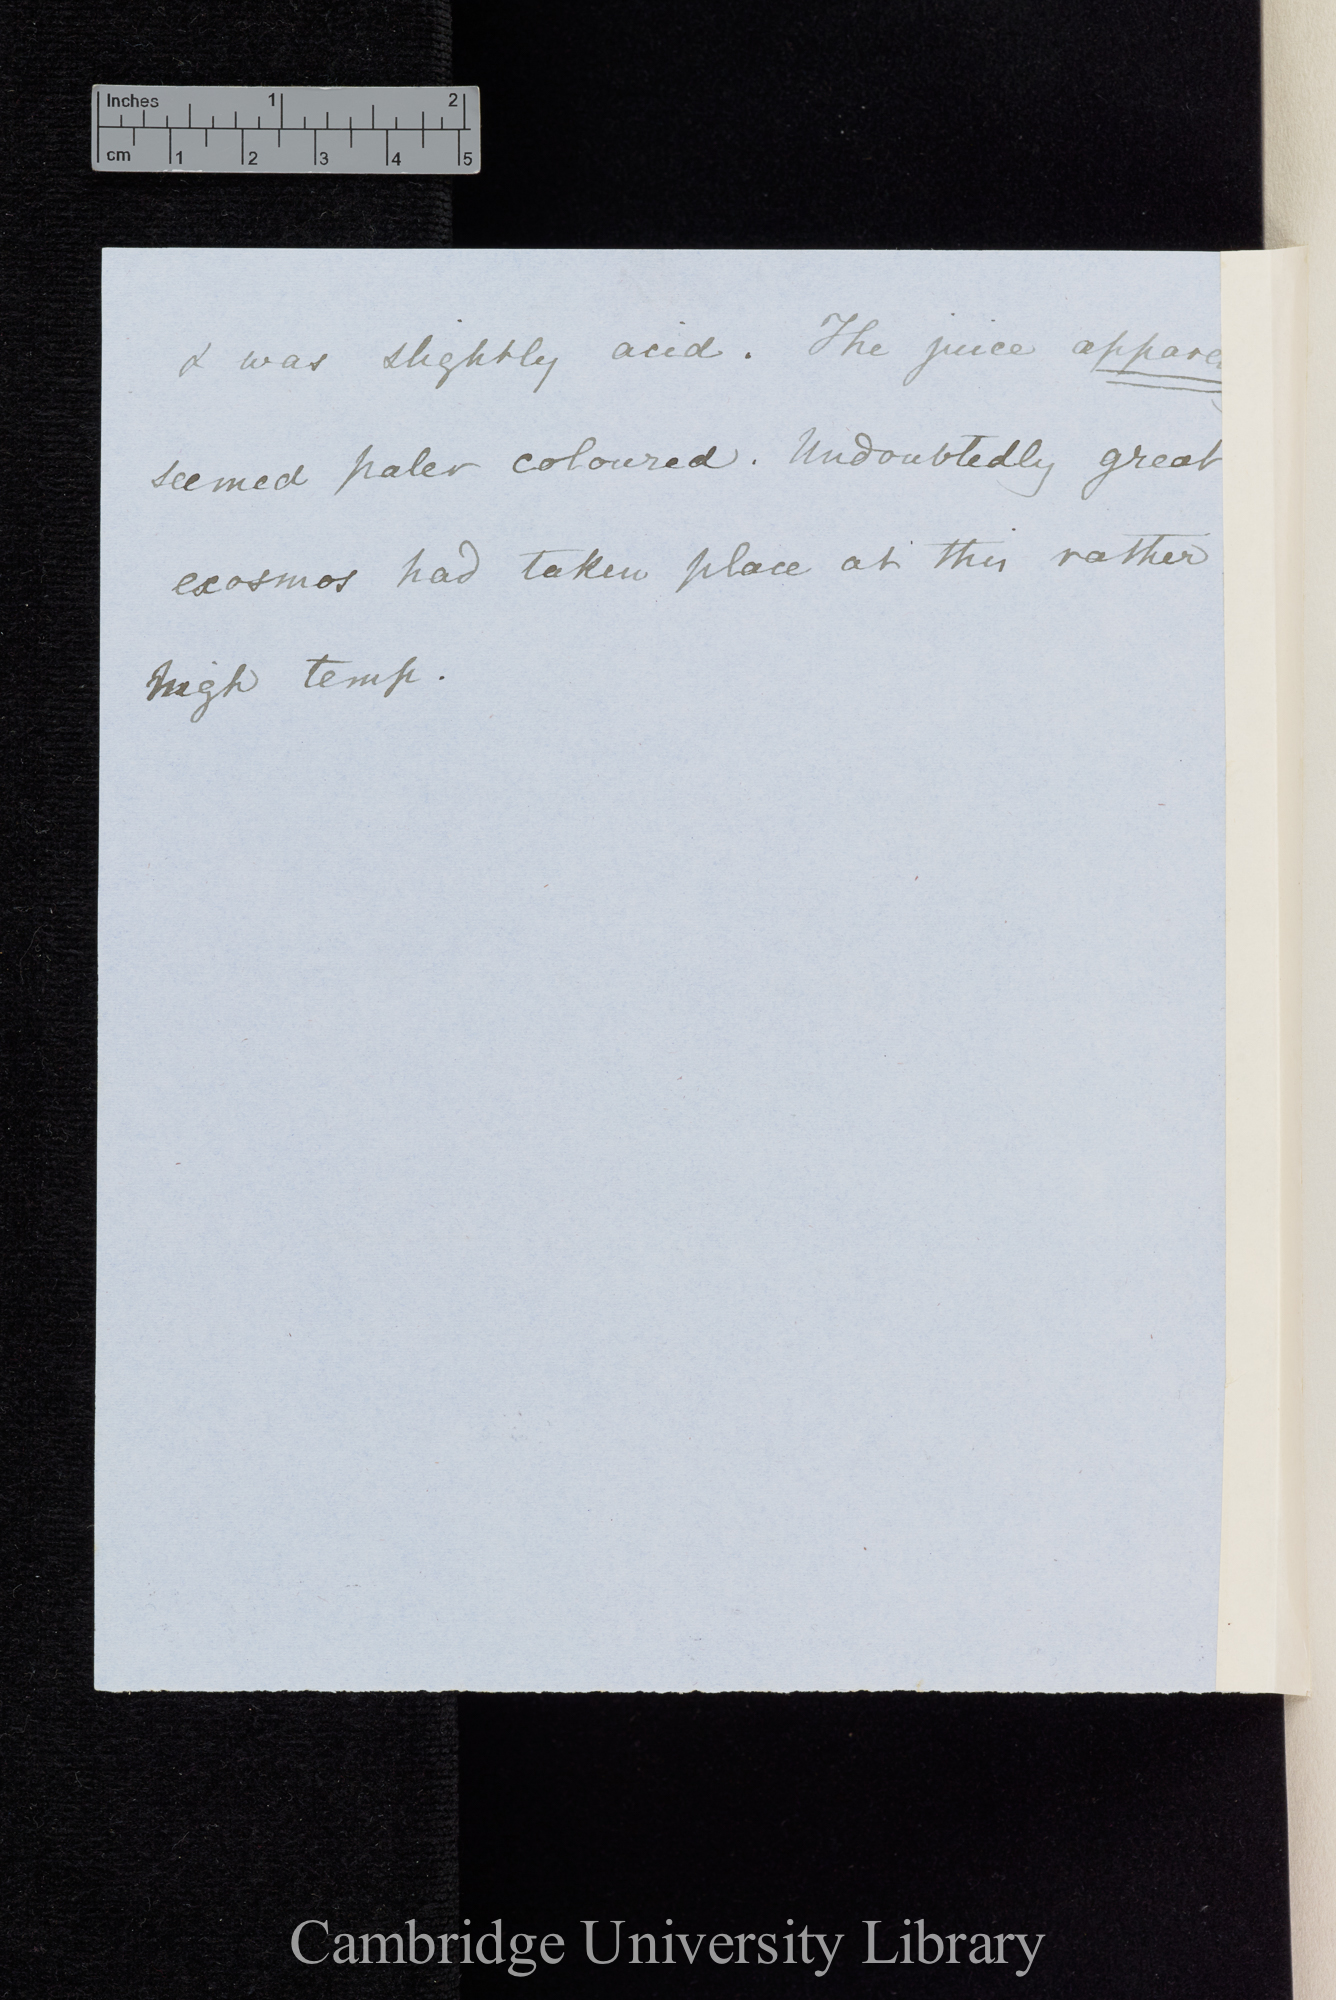 Inches 1 2
cm 1 2 3 4 5
& was slightly acid. The juice appare
seemed paler coloured. Undoubtedly great
exosmos had taken place at this rather
high temp.
Cambridge University Library